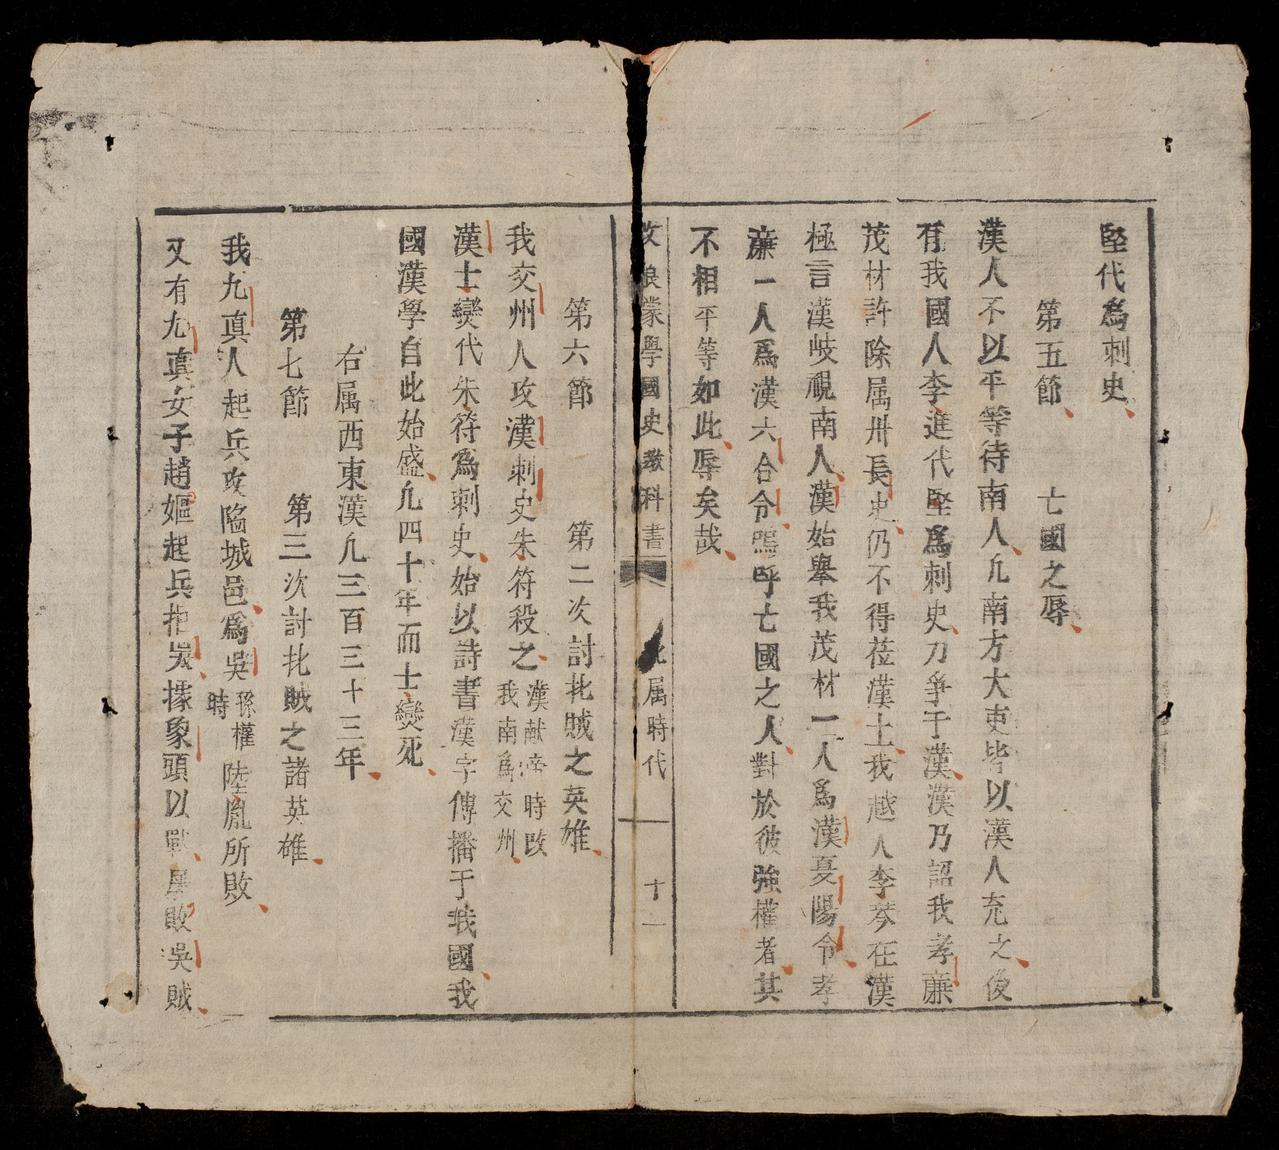 堅代爲刺史
第五節　亡國之辱
漢人不以平等待南人凢南方大吏皆以漢人充之後
有我國人李進代堅爲刺史力争于漢漢乃詔我孝廉
茂材許除属卅長史仍不得莅漢土我越人李琴在漢
極言漢岐視南人漢始舉我茂材一人爲漢夏陽令孝
廉一人爲漢六合令嗚呼亡國之人對於彼強權者其
不相平等如此辱矣哉
蒙學國史教科書　北属時代　十一
第六節　第二次討北賊之英雄
我交州人攻漢刺史朱符殺之漢献帝時改我南爲交州
漢士燮代朱符爲刺史始以詩書漢字傳播于我國我
國漢學自此始盛凢四十年而士燮死
右属西東漢凢三百三十三年
第七節　第三次討北賊之諸英雄
我九真人起兵攻陷城邑爲吳孫權時陸胤所敗
又有九真女子趙嫗起兵拒吳據象頭以戰屢敗吳賊